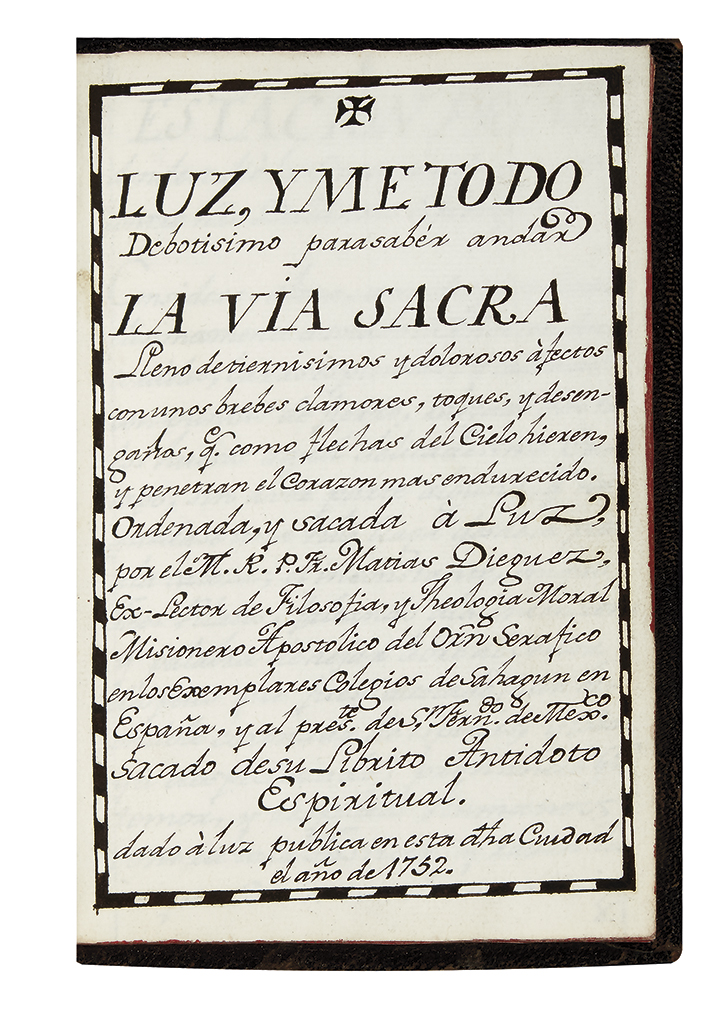 LUZ, Y METODO
Debotisimo para sabér andar
LA VIA SACRA
Lleno de tiernisimos y dolorosos àfectos
con unos brebes clamores, toques, y desen-
gaños, q.e como flechas del Cielo hieren,
y penetran el Corazon mas endurecido.
Ordenada, y sacada à Luz,
por el M. R. P. Fr. Matias Dieguez,
Ex-Lector de Filosofia, y Theologia Moral
Misionero Apostolico del Orñ Serafico
en los Exemplares Colegios de Sahagun en
España, y al pres.te de S.n Fern.do de Mex.co
Sacado de su Librito Antidoto
Espiritual.
dado à luz publica en esta dha Cuidad
el año de 1752.